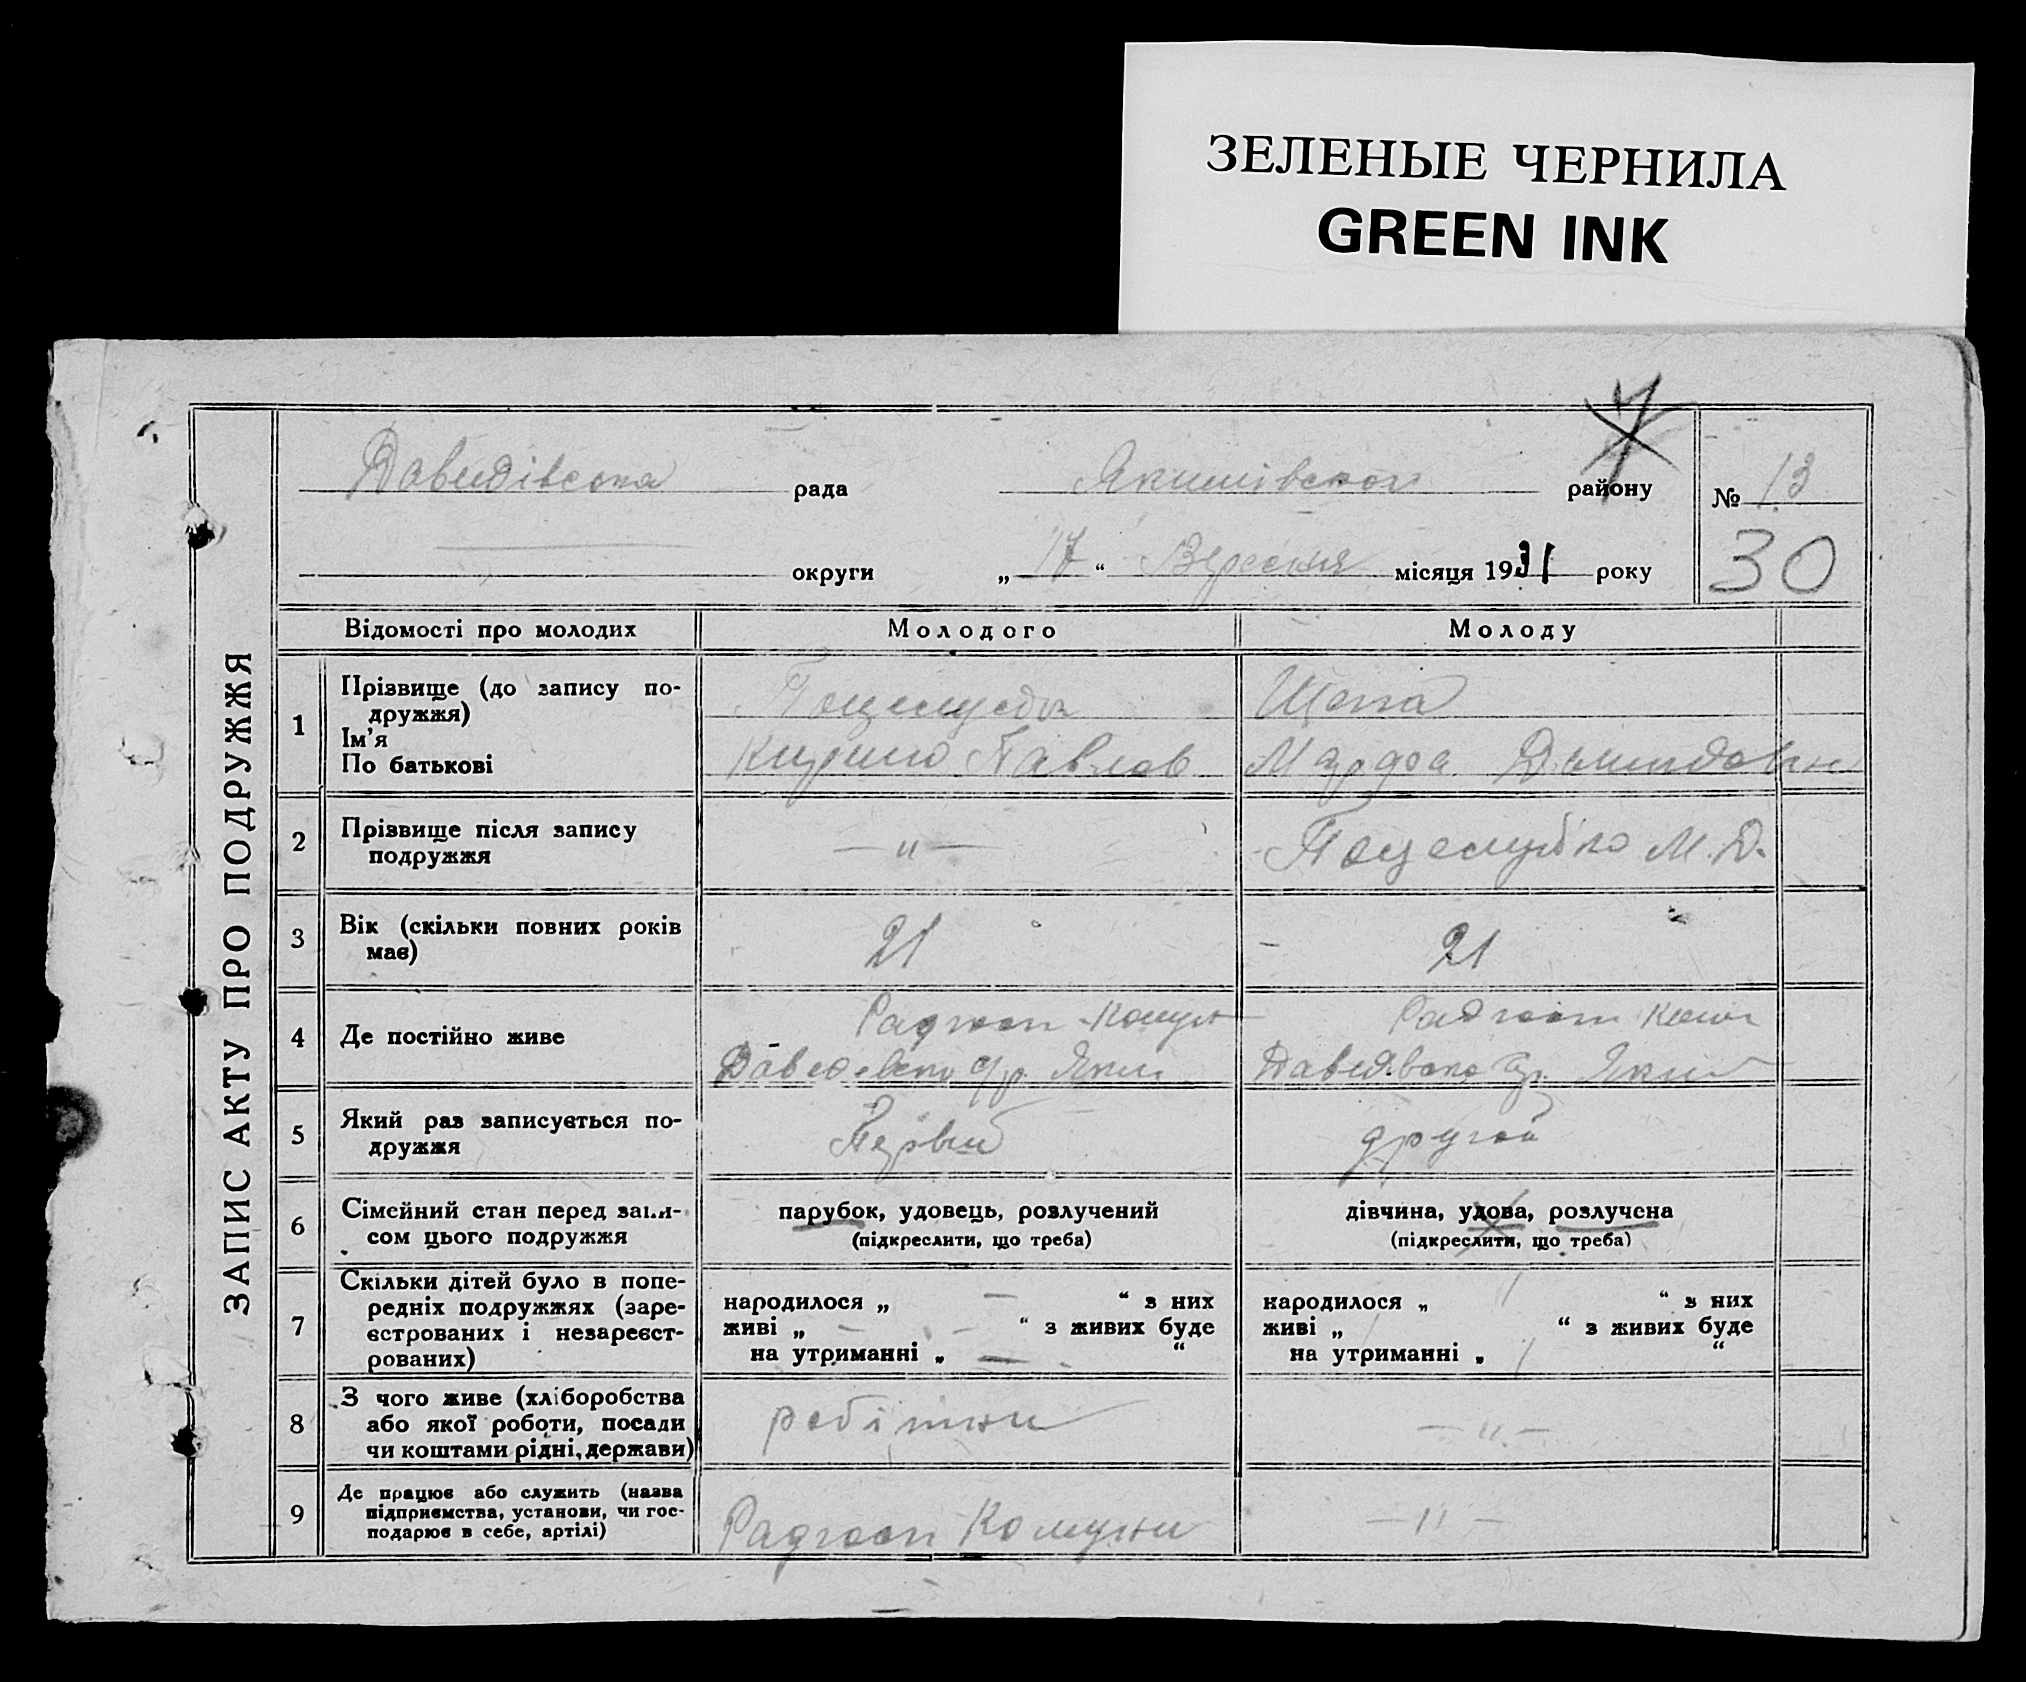 ЗЕЛЕНЫЕ ЧЕРНИЛА
GREEN INK
ЗАПИС АКТУ ПРО ПОДРУЖЖЯ
Даведівска рада Якимівского району № 13
округи „ 17 “ Вересня місяця 1931 року 30
Відомості про молодих Молодого Молоду
1 Прізвище (до запису по-
дружжя)
Ім'я
По батькові
Щепа
Кирило Павлов
2 Прізвище після запису
подружжя
— „ —
М. Д.
3 Вік (скільки повних років
має)
21 21
4 Де постійно живе
Радгосп Комун
Радгосп
5 Який раз записується по-
дружжя
Первый другой
6 Сімейний стан перед запи-
сом цього подружжя
парубок, удовець, розлучений
(підкреслити, що треба)
дівчина, удова, розлучена
(підкреслити, що треба)
7 Скільки дітей було в попе-
редніх подружжях (заре-
єстрованих і незареєст-
рованих)
народилося „ — “ з них
живі „ — “ з живих буде
на утриманні „ — “
народилося „ / “ з них
живі „ / “ з живих буде
на утриманні „ / “
8 З чого живе (хліборобства
або якої роботи, посади
чи коштами рідні, держави)
робітни — „ —
9 Де працює або служить (назва
підприємства, установи, чи гос-
подарює в себе, артілі)
Радгосп Комуни — „ —